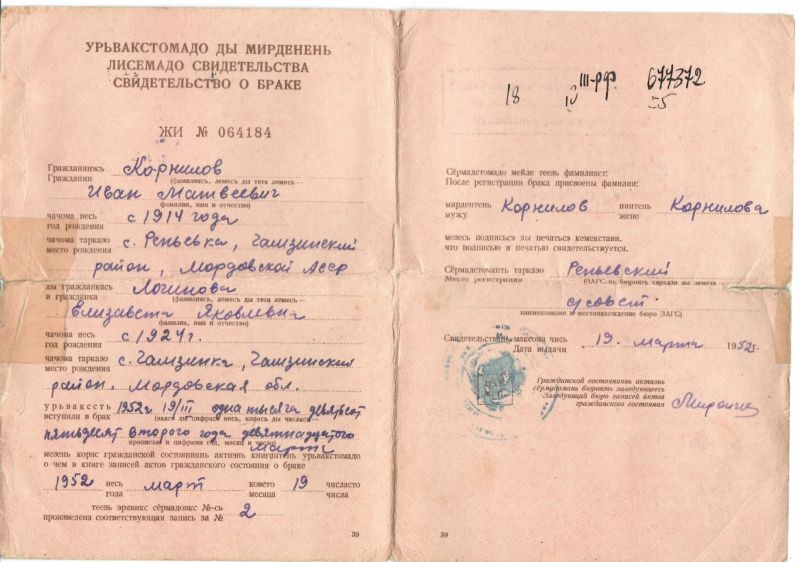 УРЬВАКСТОМАДО ДЫ МИРДЕНЕНЬ
ЛИСЕМАДО СВИДЕТЕЛЬСТВА
СВИДЕТЕЛЬСТВО О БРАКЕ
ЖИ № 064184
Гражданинэсь Корнилов
Гражданин (фамилиясь, лемесь ды тетя лемесь —
Иван Матвеевич
фамилия, имя и отчество)
чачома иесь с 1914 года
год рождения
чачома тарказо с. Репьевка, Чамзинский
место рождения
район, Мордовской Асср
ды гражданкась Логинова
и гражданка (фамилиясь, лемесь ды тетя лемесь —
Елизавета Яковлевна
фамилия, имя и отчество)
чачома иесь с 1924 г.
год рождения
чачома тарказо с. Чамзинка, Чамзинский
место рождения
район. Мордовская обл.
урьвакссть 1952 г 19/III одна тысяча девятсот
вступили в брак
пятьдесят второго года девятнадцатого
прописью и цифрами год, месяц и число)
марта
мезень коряс гражданской состояниянь актнэнь книгантень урьвакстомадо
о чем в книге записей актов гражданского состояния о браке
1952 иесь март ковето 19 числасто
года месяца числа
теезь эрявикс сёрмадовкс №-сь
произведена соответствующая запись за № 2
39
18 IV III-РФ 677372
55
Сёрмадстомадо мейле теезь фамилиест:
После регистрации брака присвоены фамилии:
мирдентень Корнилов нинтень Корнилова
мужу жене
мезесь подписьсэ ды печатьсэ кемекстави.
что подписью и печатью свидетельствуется.
Сёрмадстомань тарказо Репьевский
Место регистрации (ЗАГС-нь бюронть тарказо ды лемезэ
с/совет
наименование и местонахождение бюро ЗАГС)
Свидетельствань максома чись 19. марта 1952 г.
Дата выдачи
Гражданской состояниянь актнэнь
сёрмадомань бюронть заведующеесь
Заведующий бюро записей актов
гражданского состояния
39